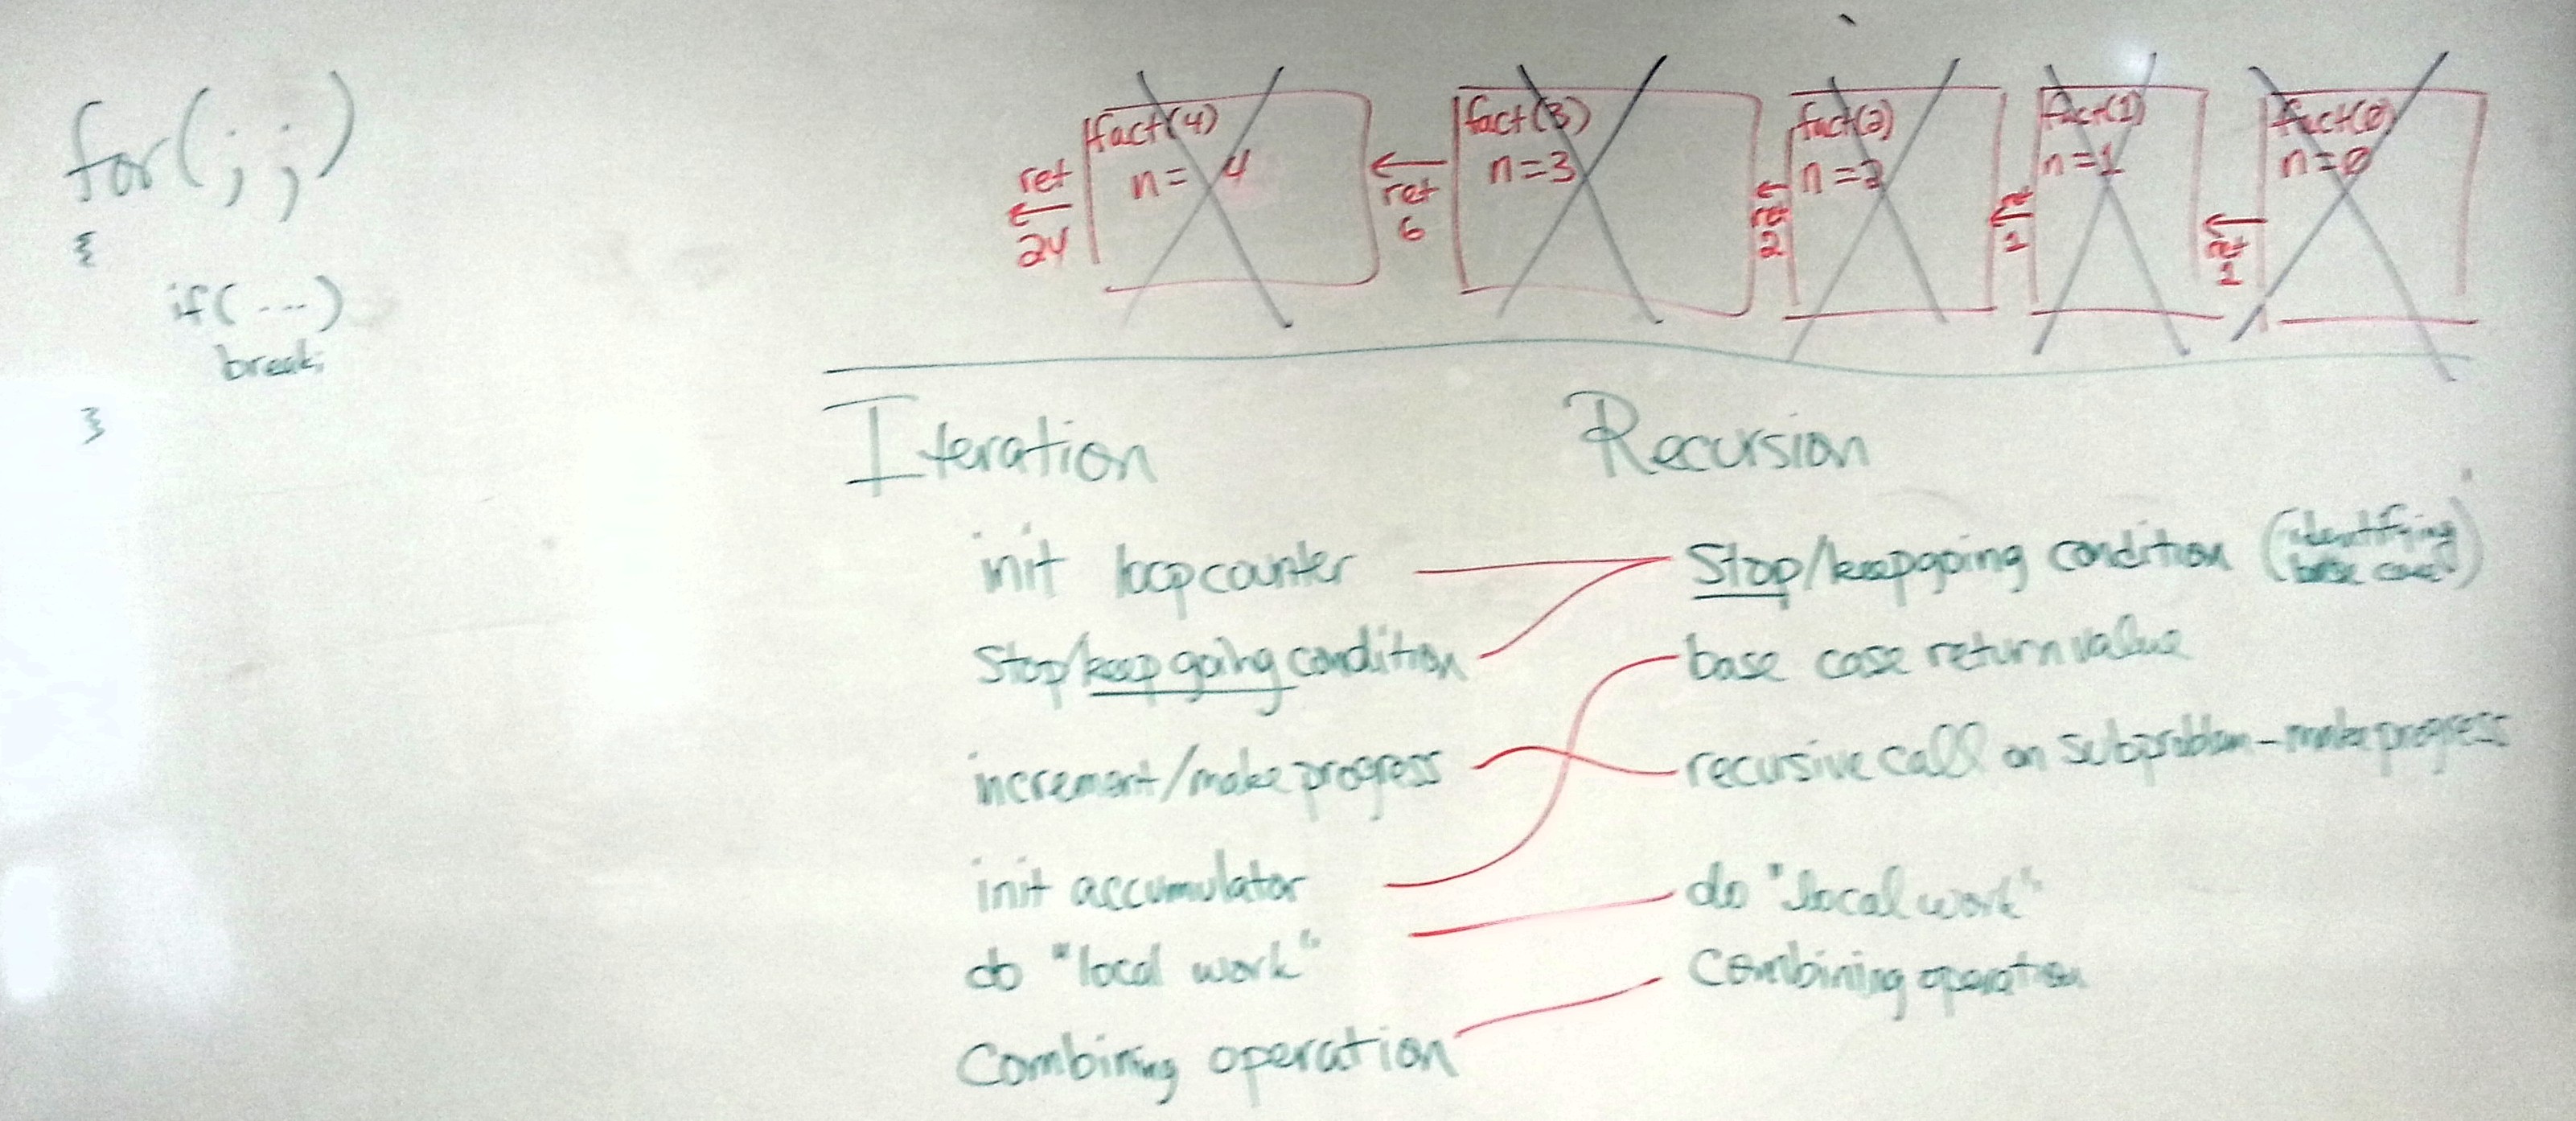 for(;;)
{
if(...)
break;
}
fact(4)
n= 4
ret
24
fact(3)
n=3
ret
6
fact(2)
n=2
ret
2
fact(1)
n=1
1
fact(0)
n=0
ret
1
Iteration
init loop counter
Stop/keep going condition
increment/make progress
init accumulator
do "local work"
Combining operation
Recursion
Stop/keep going condition (identifying
base case)
base case return value
recursive call on subproblem - make progress
do "local work"
Combining operation